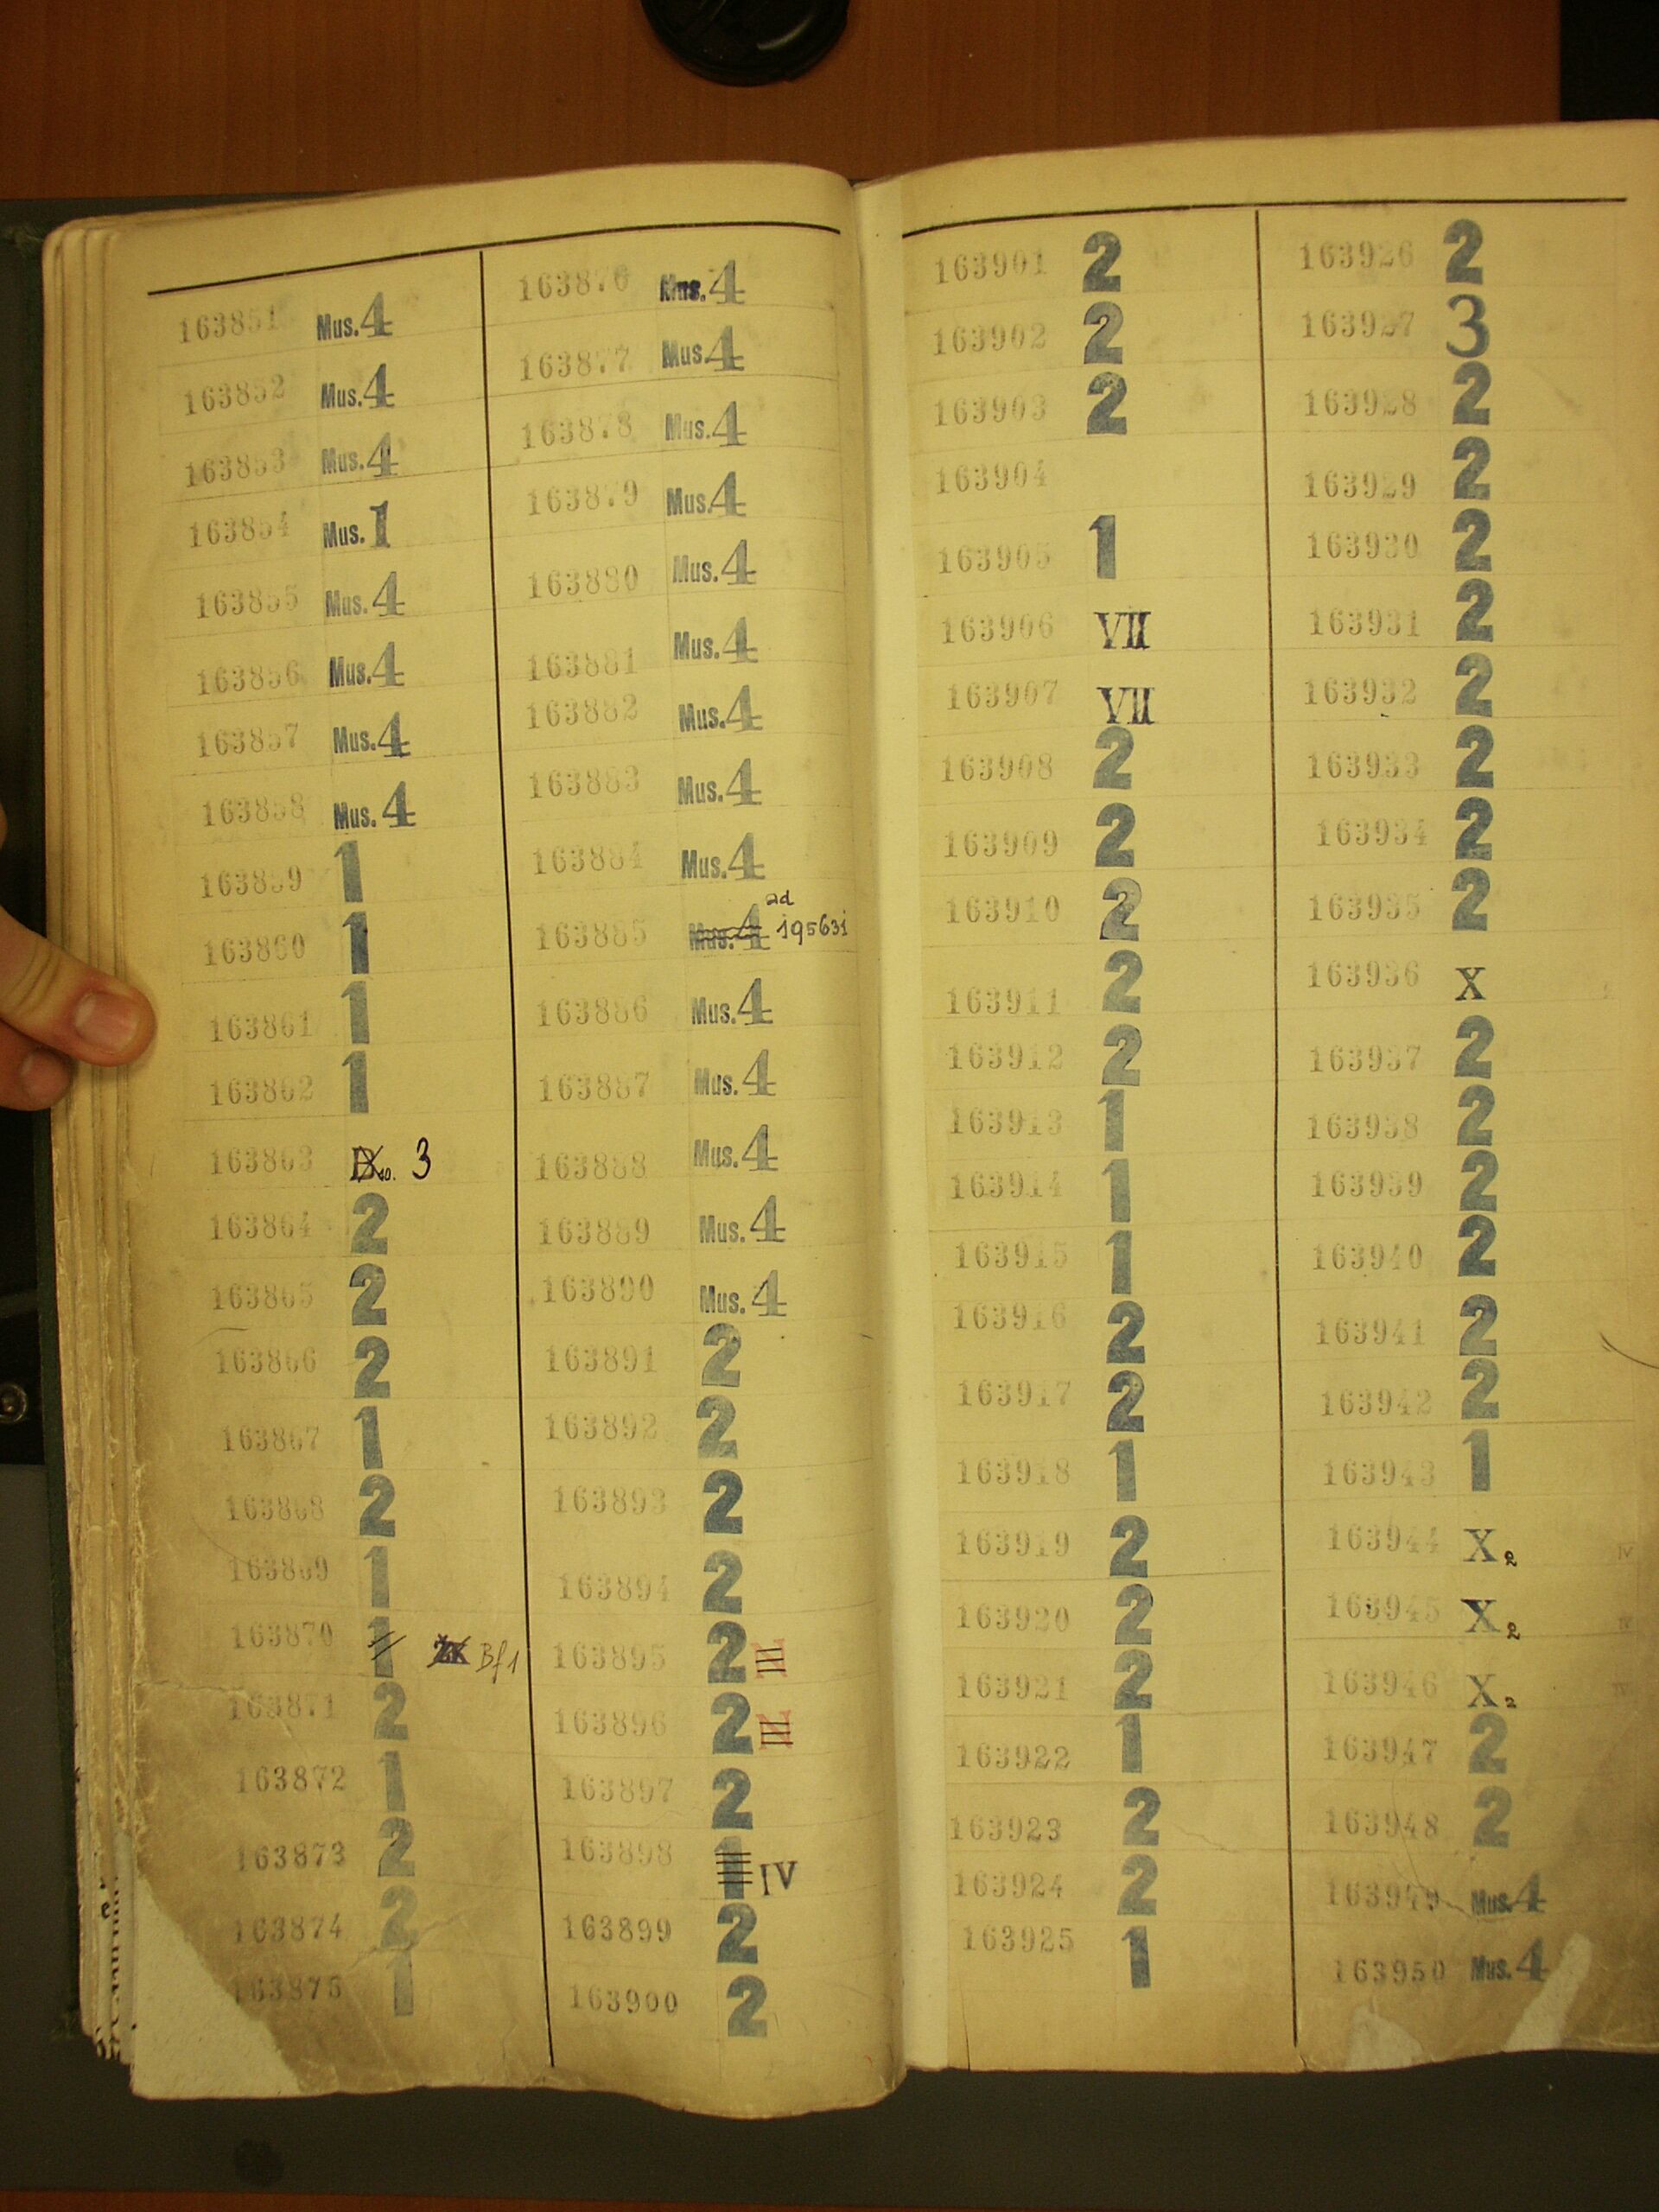 163851 Mus. 4
163852 Mus. 4
163853 Mus. 4
163854 Mus. 1
163855 Mus. 4
163856 Mus. 4
163857 Mus. 4
163858 Mus. 4
163859 1
163860 1
163861 1
163862 1
163863 3
163864 2
163865 2
163866 2
163867 1
163868 2
163869 1
163870 1 Bf1
163871 2
163872 1
163873 2
163874 2
163875 1
163876 Mus. 4
163877 Mus. 4
163878 Mus. 4
163879 Mus. 4
163880 Mus. 4
163881 Mus. 4
163882 Mus. 4
163883 Mus. 4
163884 Mus. 4
163885 Mus. 4 ad 195631
163886 Mus. 4
163887 Mus. 4
163888 Mus. 4
163889 Mus. 4
163890 Mus. 4
163891 2
163892 2
163893 2
163894 2
163895 2
163896 2
163897 2
163898 1 IV
163899 2
163900 2
163901 2
163902 2
163903 2
163904
163905 1
163906 VII
163907 VII
163908 2
163909 2
163910 2
163911 2
163912 2
163913 1
163914 1
163915 1
163916 2
163917 2
163918 1
163919 2
163920 2
163921 2
163922 1
163923 2
163924 2
163925 1
163926 2
163927 3
163928 2
163929 2
163930 2
163931 2
163932 2
163933 2
163934 2
163935 2
163936 X
163937 2
163938 2
163939 2
163940 2
163941 2
163942 2
163943 1
163944 X 2
163945 X 2
163946 X 2
163947 2
163948 2
163949 Mus. 4
163950 Mus. 4